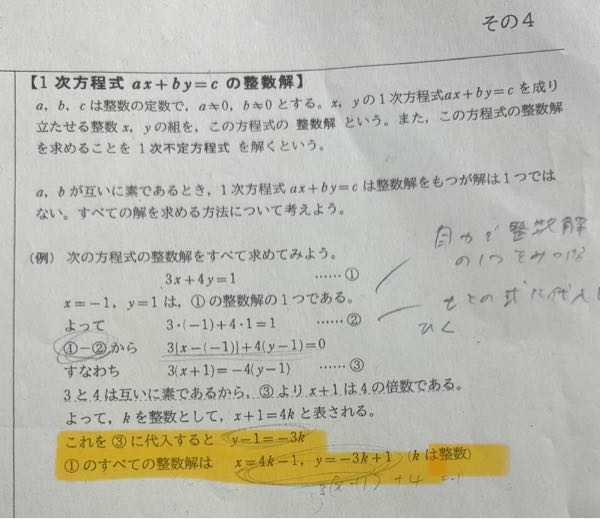 その4
【1次方程式 ax+by=c の整数解】
a, b, c は整数の定数で, a≠0, b≠0 とする。x, y の1次方程式ax+by=c を成り
立たせる整数 x, y の組を, この方程式の 整数解 という。また, この方程式の整数解
を求めることを 1次不定方程式 を解くという。
a, b が互いに素であるとき, 1次方程式 ax+by=c は整数解をもつが解は1つでは
ない。すべての解を求める方法について考えよう。
(例) 次の方程式の整数解をすべて求めてみよう。
3x+4y=1 ……①
x=-1, y=1 は, ①の整数解の1つである。
よって 3・(-1)+4・1=1 ……②
①-②から 3{x-(-1)}+4(y-1)=0
すなわち 3(x+1)=-4(y-1) ……③
3と4は互いに素であるから, ③より x+1 は4の倍数である。
よって, k を整数として, x+1=4k と表される。
これを③に代入すると y-1=-3k
①のすべての整数解は x=4k-1, y=-3k+1 (k は整数)
自力で整数解
の1つをみつけ
もとの式に代入し
ひく
3(x+1) +4